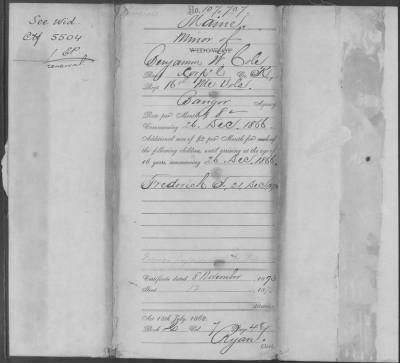 See Wid.
Ctf 5504
1 EP
renewal
No. 107,707.
Maine.
Minor of
WIDOW OF
Benjamin W. Cole
Rank Corp'l Co. K,
Regt 16th Me Vols.
Bangor Agency
Rate per Month, $8
Commencing 26 Dec. 1866.
Additional sum of $2 per Month for each of
the following children, until arriving at the age of
16 years, commencing 26 Dec. 1866.
Frederick
Certificate dated 8 November 1870
Sent
Act 14th July, 1862.
Book Vol. 7 Page
Ryan,
Clerk.